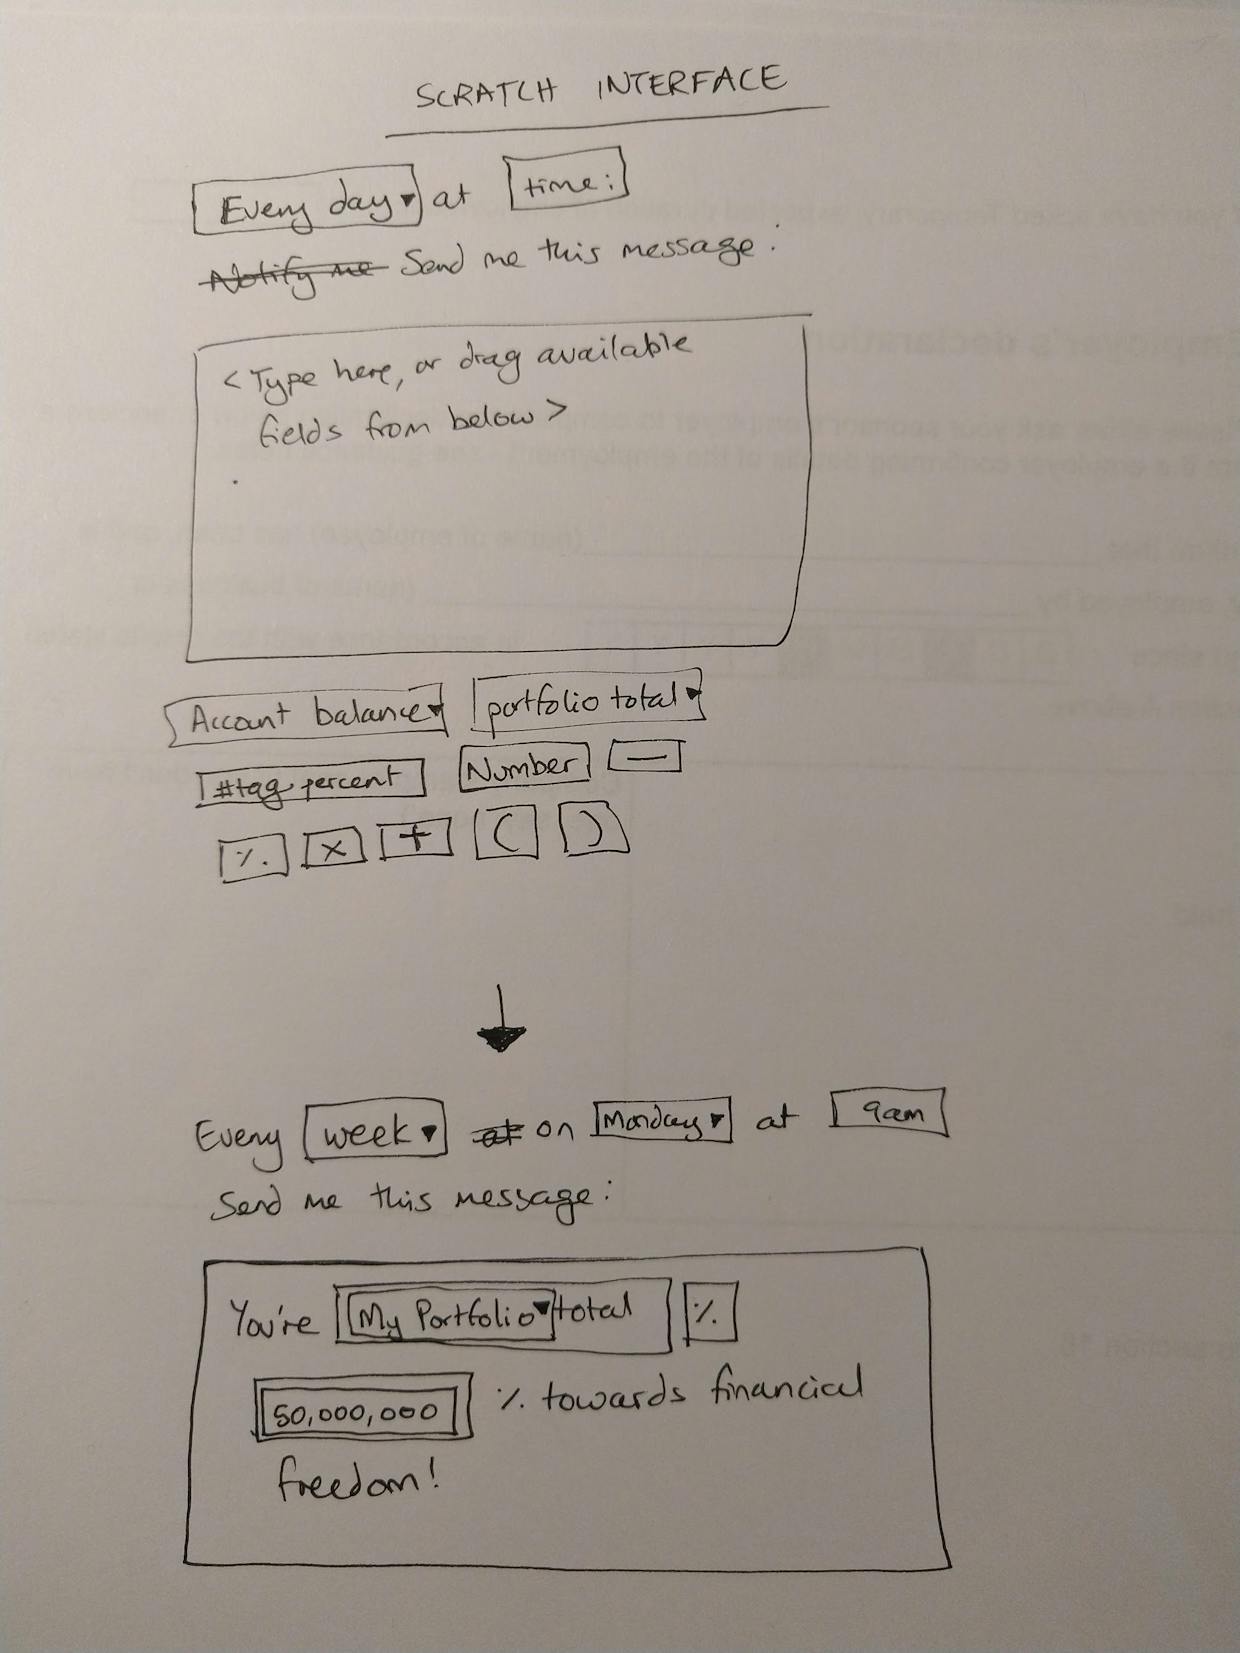 SCRATCH INTERFACE
Every day ▾ at time:
Notify me Send me this message:
<Type here, or drag available
fields from below>
Account balance ▾ portfolio total ▾
#tag percent Number —
% × + ( )
Every week ▾ at on Monday ▾ at 9am
Send me this message:
You're My Portfolio ▾ total %
50,000,000 % towards financial
freedom!